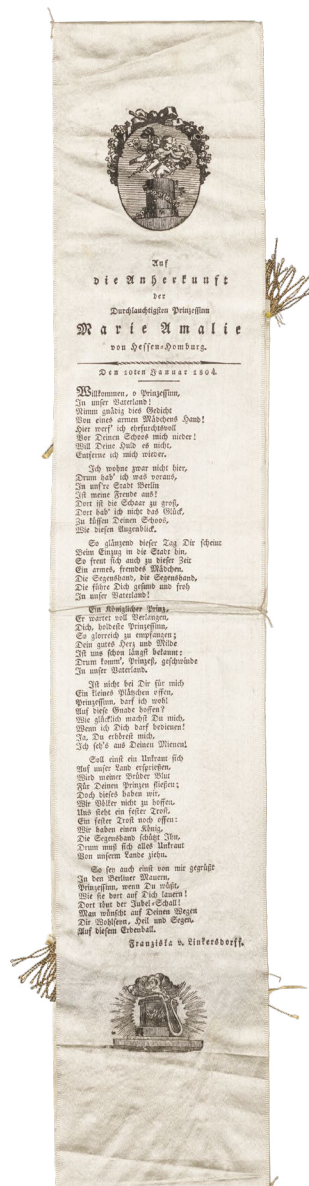 Auf
die Anherkunft
der
Durchlauchtigsten Prinzessinn
Marie Amalie
von Hessen-Homburg.
Den 10ten Januar 1804.
Willkommen, o Prinzessinn,
In unser Vaterland!
Nimm gnädig dies Gedicht
Von eines armen Mädchens Hand!
Hier werf' ich ehrfurchtsvoll
Vor Deinen Schoos mich nieder!
Will Deine Huld es nicht,
Entferne ich mich wieder.
Ich wohne zwar nicht hier,
Drum hab' ich was voraus,
In uns're Stadt Berlin
Ist meine Freude aus!
Dort ist die Schaar zu groß,
Dort hab' ich nicht das Glück,
Zu küssen Deinen Schoos,
Wie diesen Augenblick.
So glänzend dieser Tag Dir scheint
Beim Einzug in die Stadt hin,
So freut sich auch zu dieser Zeit
Ein armes, fremdes Mädchen.
Die Segenshand, die Segenshand,
Die führe Dich gesund und froh
In unser Vaterland!
Ein Königlicher Prinz,
Er wartet voll Verlangen,
Dich, holdeste Prinzessinn,
So glorreich zu empfangen;
Dein gutes Herz und Milde
Ist uns schon längst bekannt:
Drum komm', Prinzeß, geschwinde
In unser Vaterland.
Ist nicht bei Dir für mich
Ein kleines Plätzchen offen,
Prinzessinn, darf ich wohl
Auf diese Gnade hoffen?
Wie glücklich machst Du mich,
Wenn ich Dich darf bedienen!
Ja, Du erhörest mich,
Ich seh's aus Deinen Mienen!
Soll einst ein Unkraut sich
Auf unser Land ersprießen,
Wird meiner Brüder Blut
Für Deinen Prinzen fließen;
Doch dieses haben wir,
Wir Völker nicht zu hoffen.
Uns steht ein fester Trost,
Ein fester Trost noch offen:
Wir haben einen König,
Die Segenshand schützt Ihn,
Drum muß sich alles Unkraut
Von unserm Lande ziehn.
So sey auch einst von mir gegrüßt
In den Berliner Mauern,
Prinzessinn, wenn Du wüßt,
Wie sie dort auf Dich lauern!
Dort tönt der Jubel-Schall!
Man wünscht auf Deinen Wegen
Dir Wohlseyn, Heil und Segen,
Auf diesem Erdenball.
Franziska v. Linkersdorff.